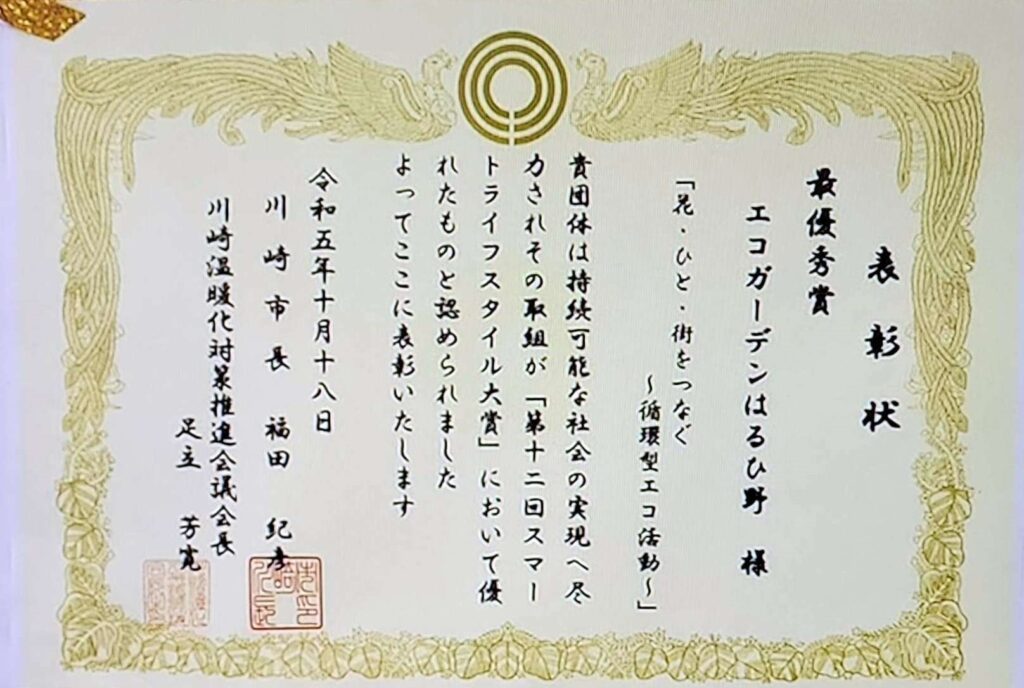 表彰状
最優秀賞
エコガーデンはるひ野 様
「花・ひと・街をつなぐ
～循環型エコ活動～」
貴団体は持続可能な社会の実現へ尽
力されその取組が「第十二回スマー
トライフスタイル大賞」において優
れたものと認められました
よってここに表彰いたします
令和五年十月十八日
川崎市長 福田 紀彦
川崎温暖化対策推進会議会長
足立 芳寛